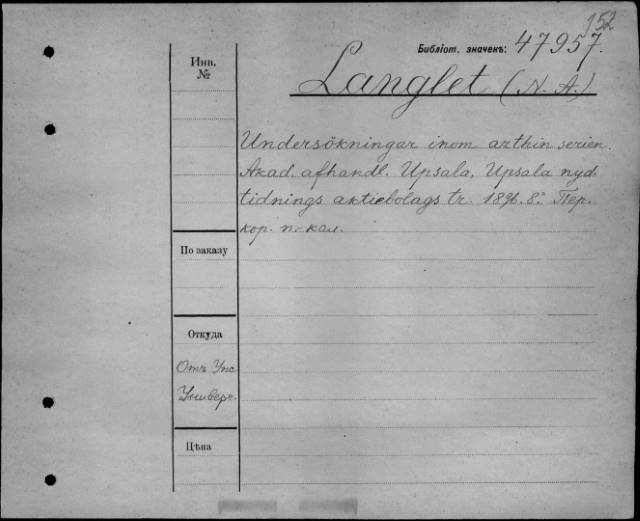 152
Библіот. значекъ: 47957.
Инв.
№
Langlet (N. A.)
Undersökningar inom azthin serien.
Akad. afhandl. Upsala, Upsala nyd.
tidnings aktiebolags tr. 1896. 8.° Пер.
кор. п.-кал.
По заказу
Откуда
Отъ Упс
Универ.
Цѣна